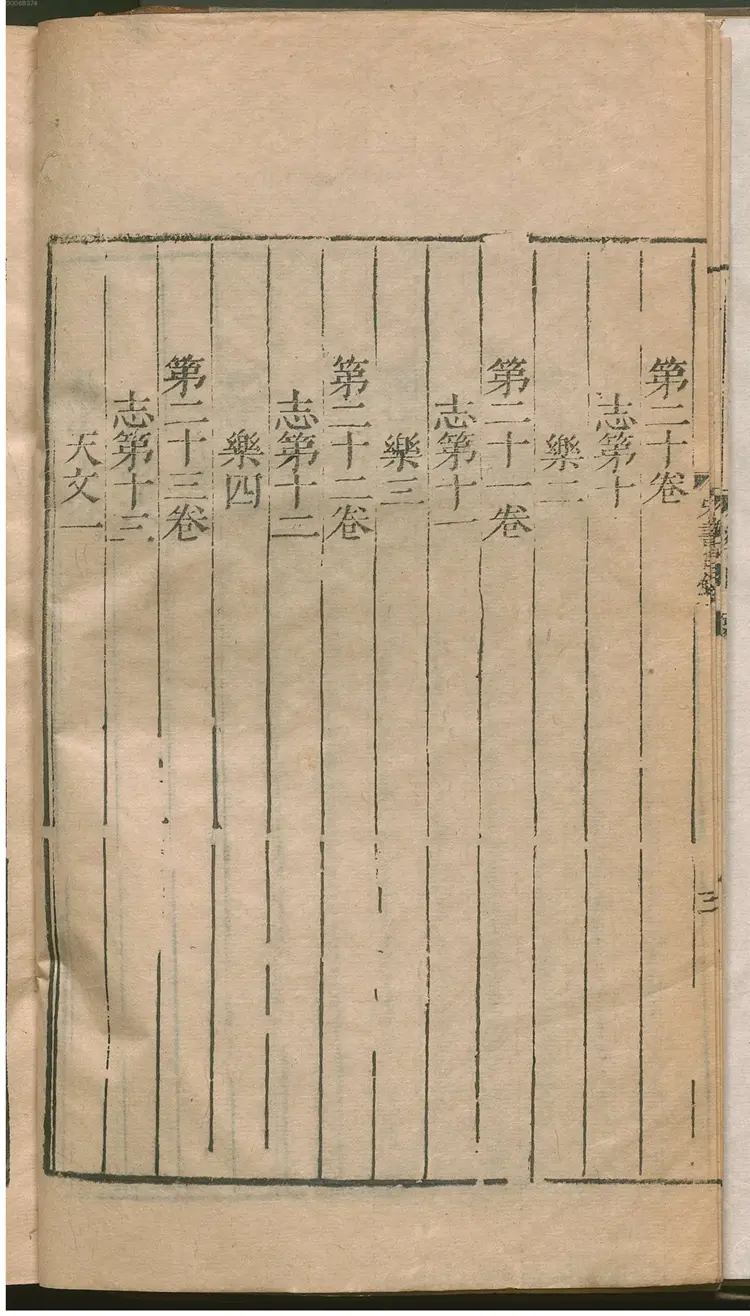 第二十卷
志第十
樂二
第二十一卷
志第十一
樂三
第二十二卷
志第十二
樂四
第二十三卷
志第十三
天文一
三